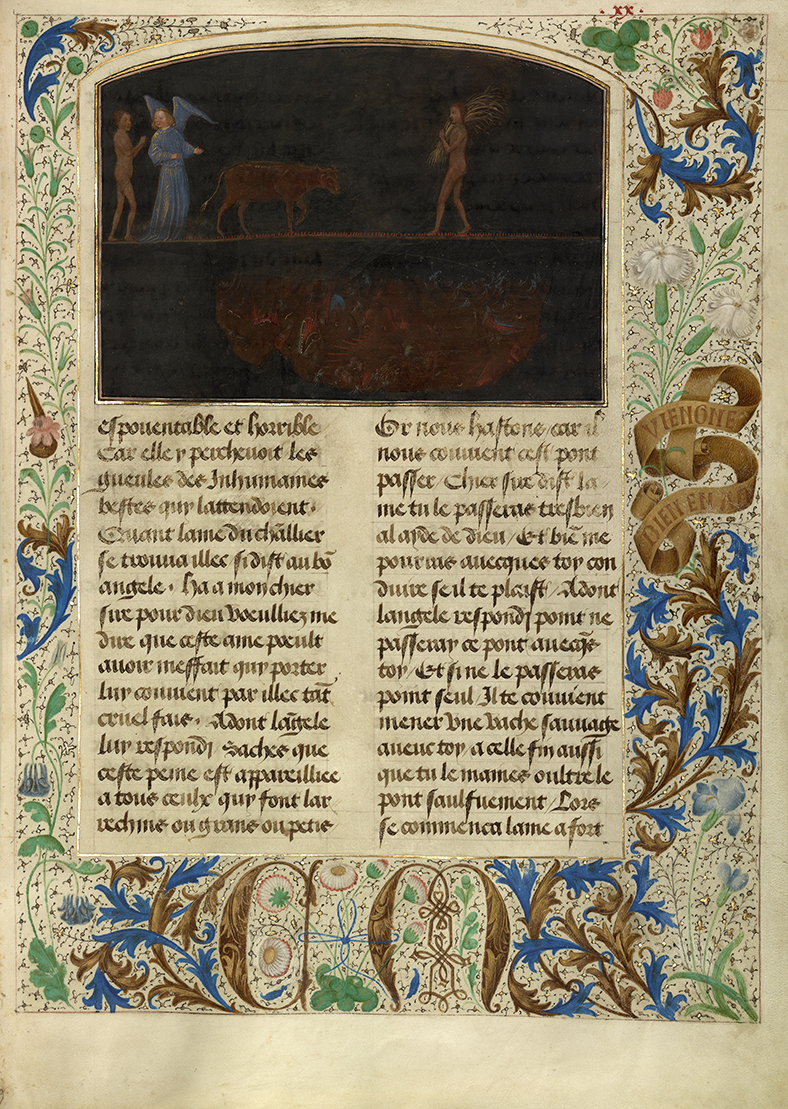 xx.
espouentable et horrible
Car elle y percheuoit les
gueules des Inhumaines
bestes quy lattendoient.
Quant lame du chãllier
se trouua illec si dist au bõ
angele. ha a mon chier
sire pour dieu voeulliez me
dire que ceste ame poeult
auoir meffait quy porter
luy conuient par illec tãt
cruel fais. Adont lãgele
luy respondi Saches que
ceste peine est appareilliee
a tous ceulx quy font lar
rechins ou grans ou petis
Or nous hastons car il
nous conuient cest pont
passer / Chier sire dist la
me tu le passeras tresbien
al ayde de dieu / Et biẽ me
pourras auecques toy con
duire se il te plaist / Adont
langele respondi point ne
passeray ce pont auecq̃s
toy / Et si ne le passeras
point seul Il te conuient
mener vne vache sauuage
auenc toy a celle fin aussi
que tu le maines oultre le
pont saulfuement / Lors
se commenca lame a fort
VIENGNE
BIEN EN
C M